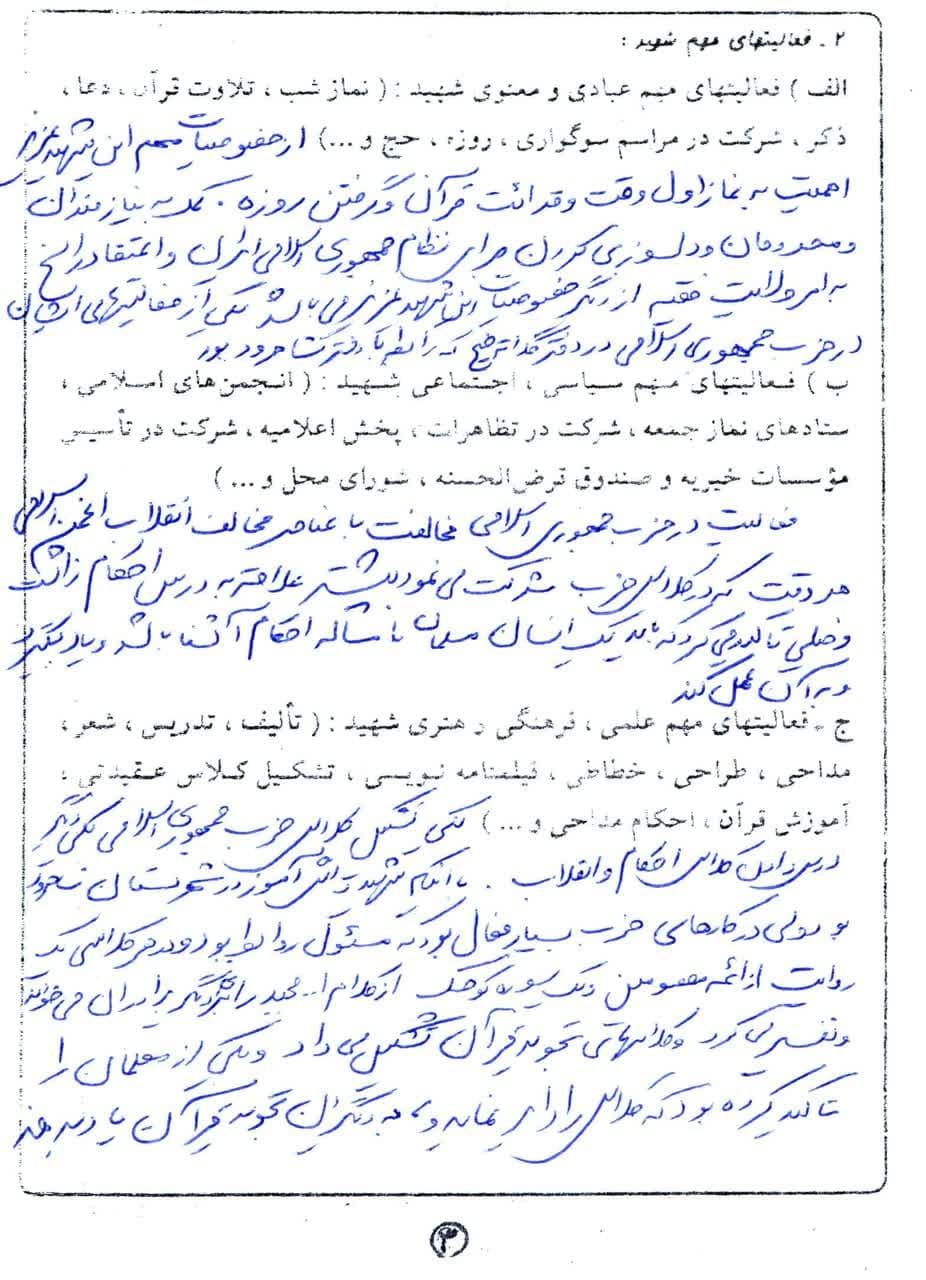 ۲ - فعالیتهای مهم شهید :
الف ) فعالیتهای مهم عبادی و معنوی شهید : ( نماز شب ، تلاوت قرآن ، دعا ،
ذکر ، شرکت در مراسم سوگواری ، روزه ، حج و ... ) از خصوصیات مهم این شهید عزیز
اهمیت به نماز اول وقت و قرائت قرآن و گرفتن روزه . کمک به نیازمندان
و محرومان و دلسوزی کردن برای نظام جمهوری اسلامی ایران و اعتقاد راسخ
به امر ولایت فقیه از دیگر خصوصیات این شهید عزیز می باشد یکی از فعالیتهای ایشان
در حزب جمهوری اسلامی در دفتر که رابط با دفتر بود
ب ) فعالیتهای مهم سیاسی ، اجتماعی شهید : ( انجمن‌های اسلامی ،
ستادهای نماز جمعه ، شرکت در تظاهرات ، پخش اعلامیه ، شرکت در تأسیس
مؤسسات خیریه و صندوق قرض‌الحسنه ، شورای محل و ... )
فعالیت در حزب جمهوری اسلامی مخالفت با عناصر مخالف انقلاب
هر وقت که در کلاس حزب شرکت می نمود بیشتر علاقه به درس احکام داشت
و خیلی تاکید می کرد که باید یک انسان مسلمان با مساله احکام آشنا باشد و یاد بگیرد
و به آن عمل کند
ج - فعالیتهای مهم علمی ، فرهنگی و هنری شهید : ( تألیف ، تدریس ، شعر ،
مداحی ، طراحی ، خطاطی ، فیلمنامه نویسی ، تشکیل کلاس عقیدتی ،
آموزش قرآن ، احکام مداحی و ... ) یکی تشکیل کلاس حزب جمهوری اسلامی یکی دیگر
کلاس احکام و انقلاب . با اینکه شهید دانش آموز در شهرستان
بود ولی در کارهای حزب بسیار فعال بود که مسئول روابط بود و در هر کلاس یک
روایت از ائمه معصومین و یک سوره کوچک از کلام ا... مجید را برای دیگر برادران می خواند
و تفسیر می کرد و کلاسهای تجوید قرآن تشکیل می داد و یکی از معلمان را
تاکید کرده بود که کلاس را دایر نماید و به دیگران تجوید قرآن یاد بدهد
۳